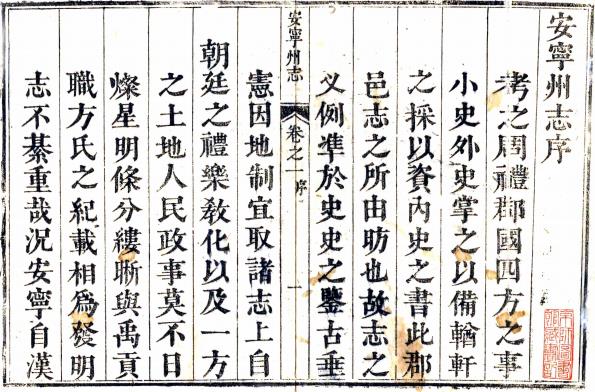 安寧州志序
考之周禮郡國四方之事
小史外史掌之以備輶軒
之採以資內史之書此郡
邑志之所由昉也故志之
义例準於史史之鑒古垂
安寧州志
卷之一
序
一
憲因地制宜取諸志上自
朝廷之禮樂敎化以及一方
之土地人民政事莫不日
燦星明條分縷晰與禹貢
職方氏之紀載相爲發明
志不綦重哉況安寧自漢